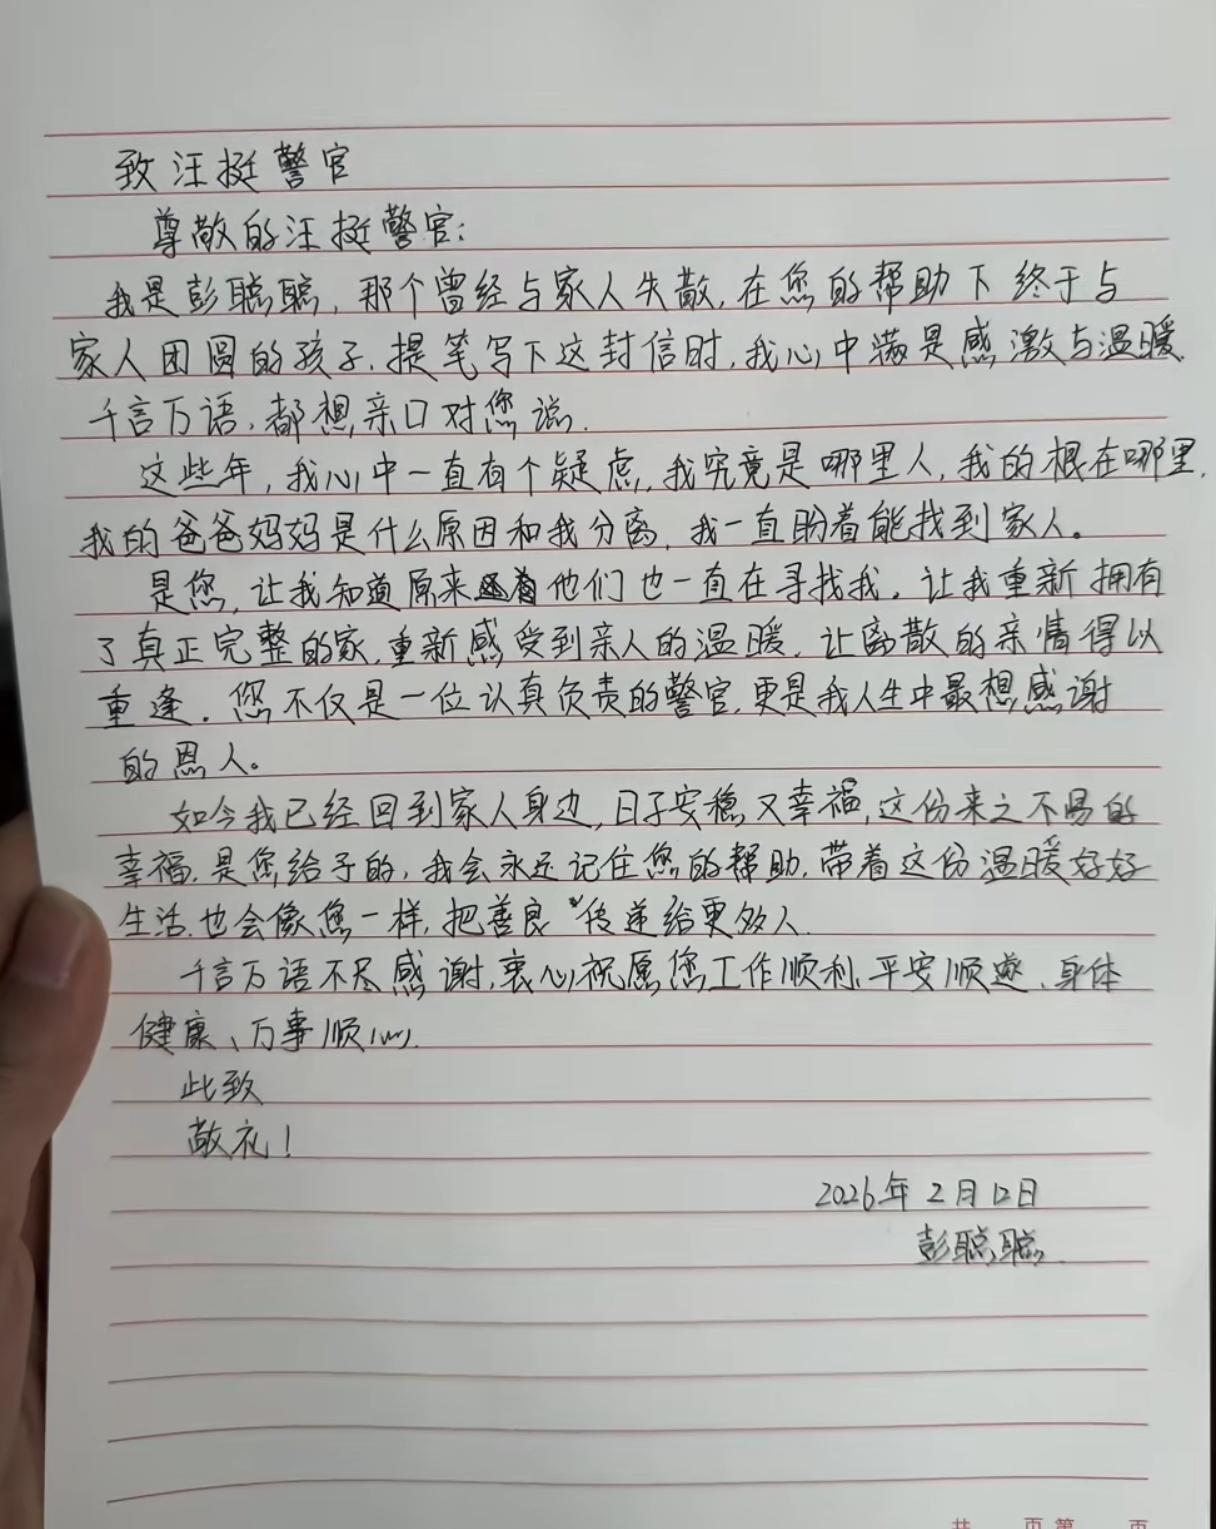 致汪挺警官
尊敬的汪挺警官:
我是彭聪聪,那个曾经与家人失散,在您的帮助下终于与
家人团圆的孩子.提笔写下这封信时,我心中满是感激与温暖.
千言万语,都想亲口对您说.
这些年,我心中一直有个疑虑,我究竟是哪里人,我的根在哪里,
我的爸爸妈妈是什么原因和我分离,我一直盼着能找到家人。
是您,让我知道原来他们也一直在寻找我。让我重新拥有
了真正完整的家,重新感受到亲人的温暖.让离散的亲情得以
重逢。您不仅是一位认真负责的警官,更是我人生中最想感谢
的恩人。
如今我已经回到家人身边,日子安稳又幸福,这份来之不易的
幸福.是您给予的,我会永远记住您的帮助.带着这份温暖好好
生活.也会像您一样,把善良传递给更多人.
千言万语不尽感谢,衷心祝愿您工作顺利、平安顺遂、身体
健康、万事顺心.
此致
敬礼!
2026年2月12日
彭聪聪.
共 页 第 页